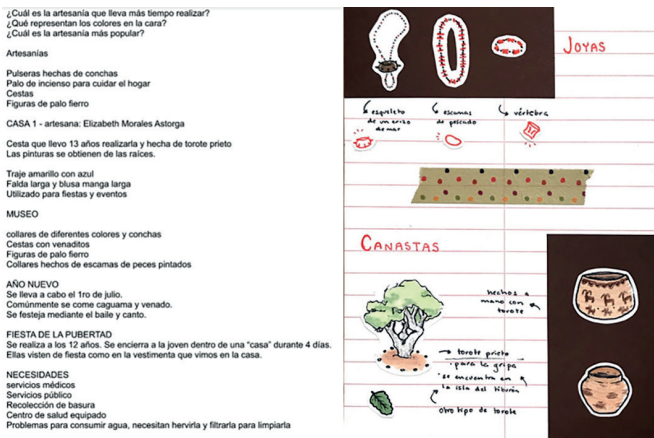 ¿Cuál es la artesanía que lleva más tiempo realizar?
¿Qué representan los colores en la cara?
¿Cuál es la artesanía más popular?
Artesanías
Pulseras hechas de conchas
Palo de incienso para cuidar el hogar
Cestas
Figuras de palo fierro
CASA 1 - artesana: Elizabeth Morales Astorga
Cesta que llevo 13 años realizarla y hecha de torote prieto
Las pinturas se obtienen de las raíces.
Traje amarillo con azul
Falda larga y blusa manga larga
Utilizado para fiestas y eventos
MUSEO
collares de diferentes colores y conchas
Cestas con venaditos
Figuras de palo fierro
Collares hechos de escamas de peces pintados
AÑO NUEVO
Se lleva a cabo el 1ro de julio.
Comúnmente se come caguama y venado.
Se festeja mediante el baile y canto.
FIESTA DE LA PUBERTAD
Se realiza a los 12 años. Se encierra a la joven dentro de una "casa" durante 4 días.
Ellas visten de fiesta como en la vestimenta que vimos en la casa.
NECESIDADES
servicios médicos
Servicios público
Recolección de basura
Centro de salud equipado
Problemas para consumir agua, necesitan hervirla y filtrarla para limpiarla
JOYAS
esqueleto
de un erizo
de mar
escamas
de pescado
vértebra
CANASTAS
hechos a
mano con
torote
torote prieto
para la gripa
se encuentra en
la isla del tiburón
otro tipo de torote